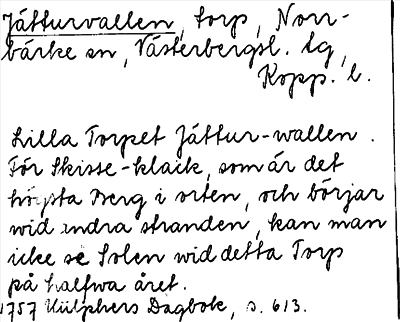 Jätturvallen, torp, Norr-
bärke sn, Västerbergsl. lg,
Kopp. l.
Lilla Torpet Jättur-wallen.
För Skisse-klack, som är det
högsta Berg i orten, och börjar
wid andra stranden, kan man
icke se Solen wid detta Torp
på halfwa året.
1757 Hülphers Dagbok, s. 613.